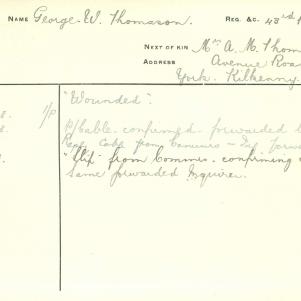 NAME George. W. Thomason. REG. &C. 43rd
NEXT OF KIN Mrs A. M. Thom
ADDRESS Avenue Roa
York. Kilkenny
"Wounded".
8. 1/P P/Cable. confirmed. forwarded
Cable from
"Slip" from Commis. confirming
same forwarded Inquirer.